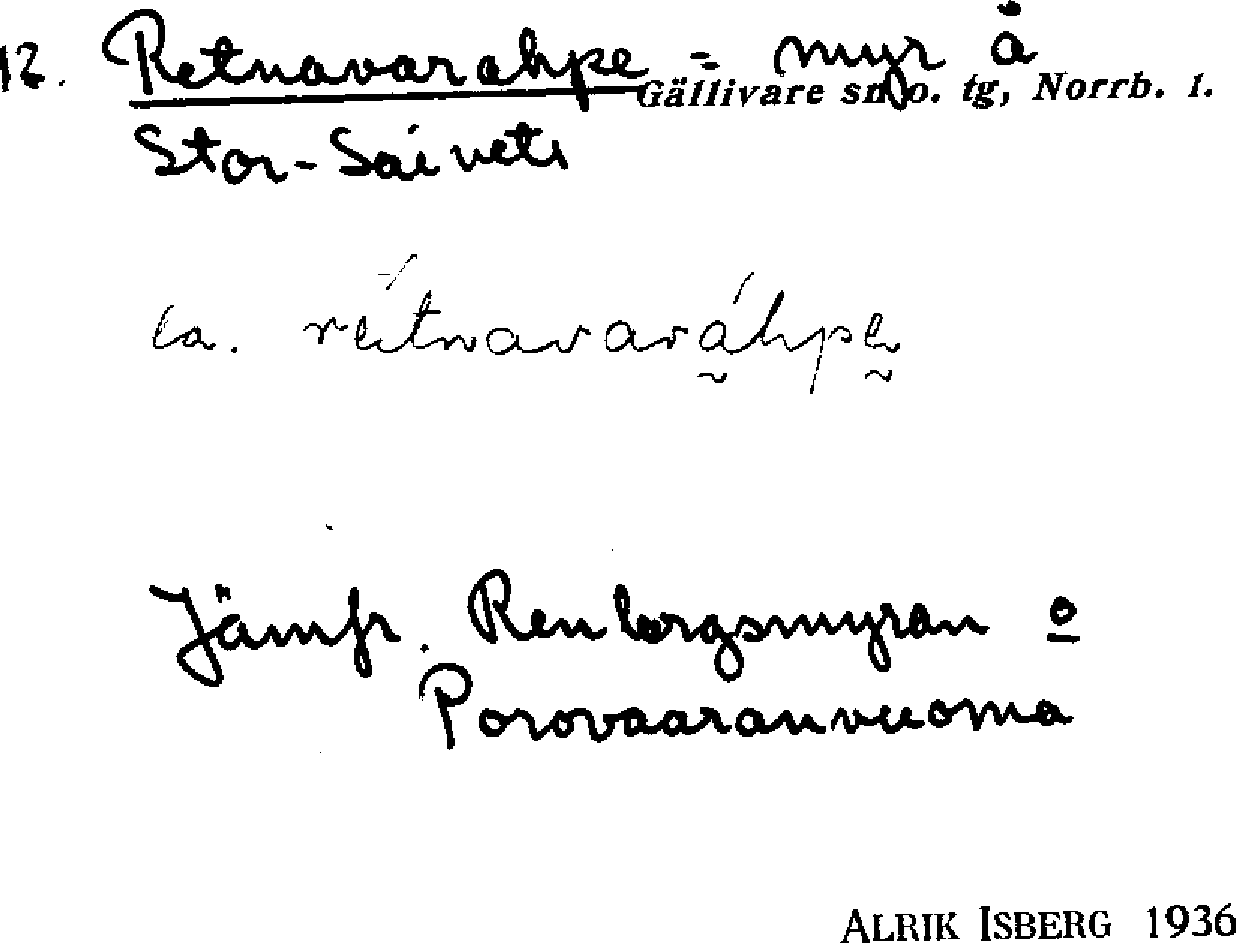 12. Retnavarahpe = myr å
Gällivare sn o. tg, Norrb. l.
Stor-Saivets
la. reitnavaráhpe
Jämfr. Renbergsmyran o
Porovaaranvuoma
ALRIK ISBERG 1936